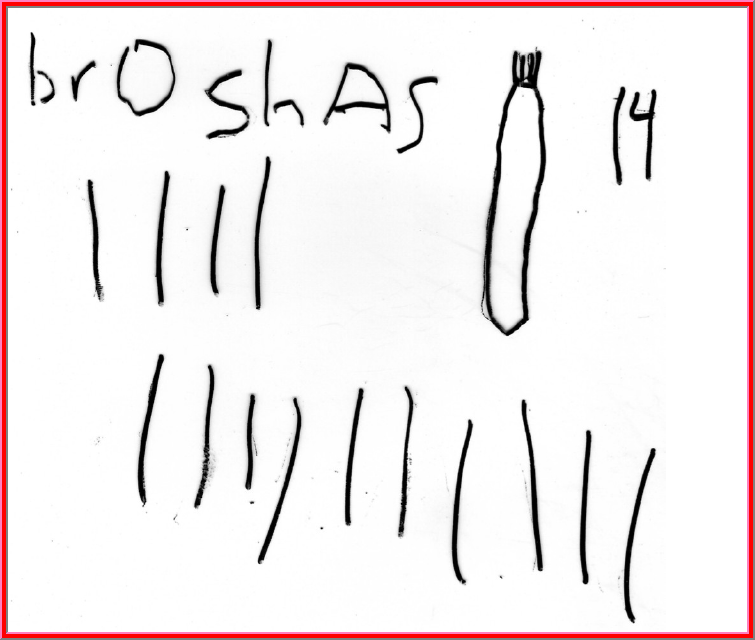 brOshAs
14